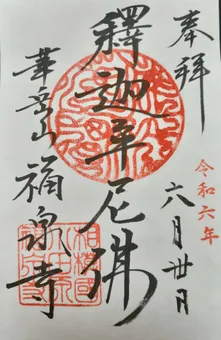 奉拝
令和六年
六月廿日
釋迦牟尼佛
華岳山
福泉寺